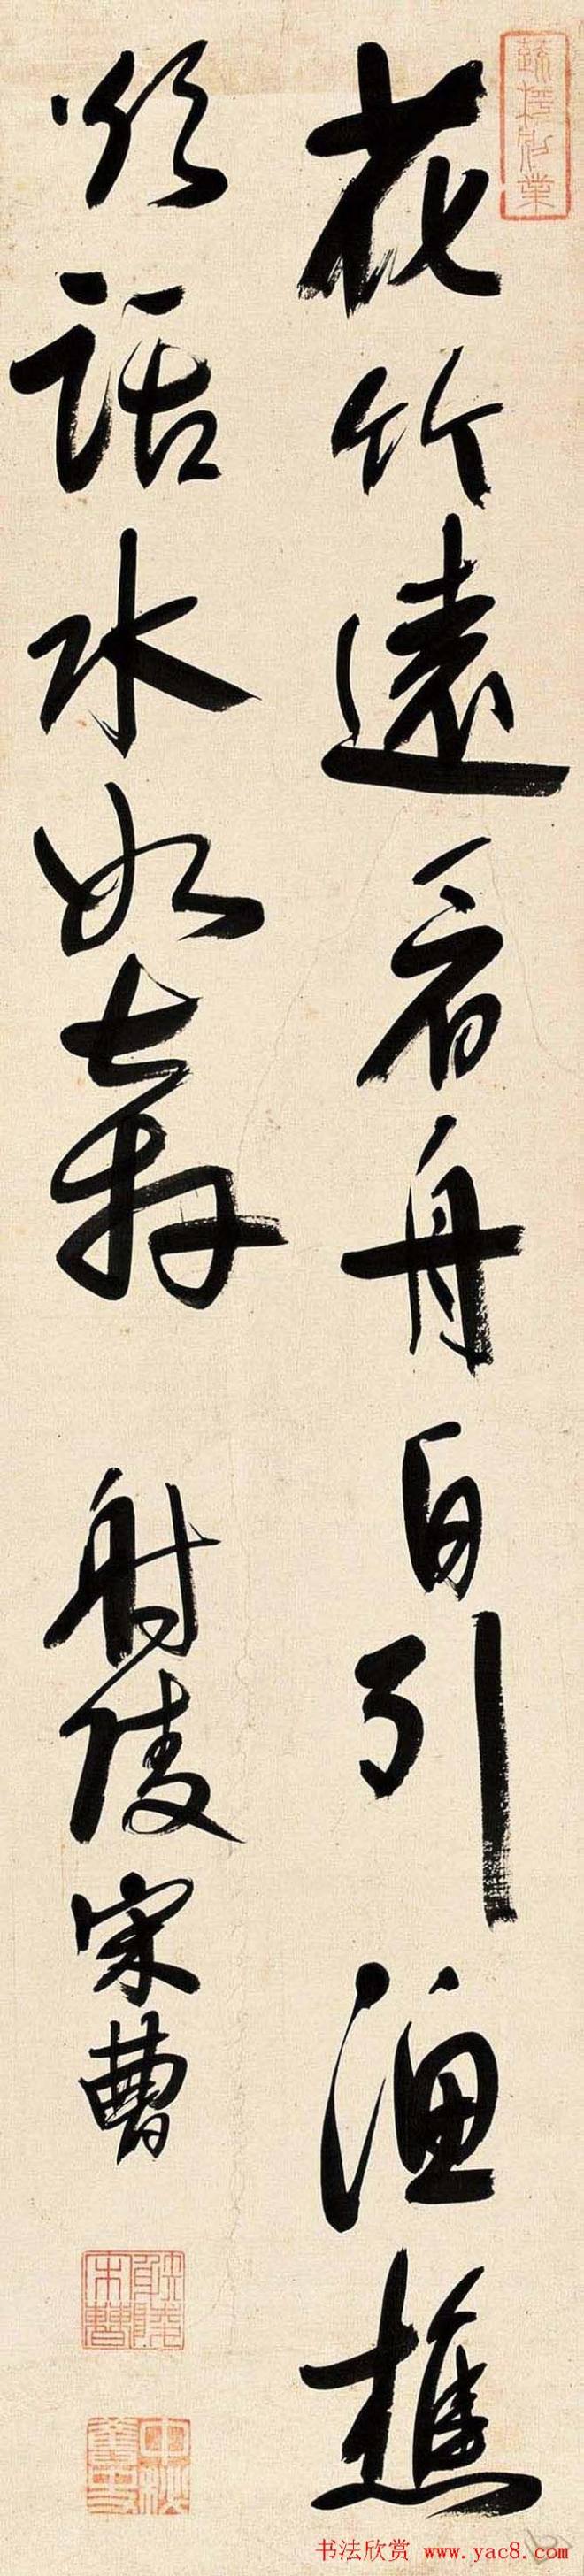 花竹遠看舟自引漁樵
話水如奔
射陵宋曹
射陵宋曹
书法欣赏 www.yac8.com